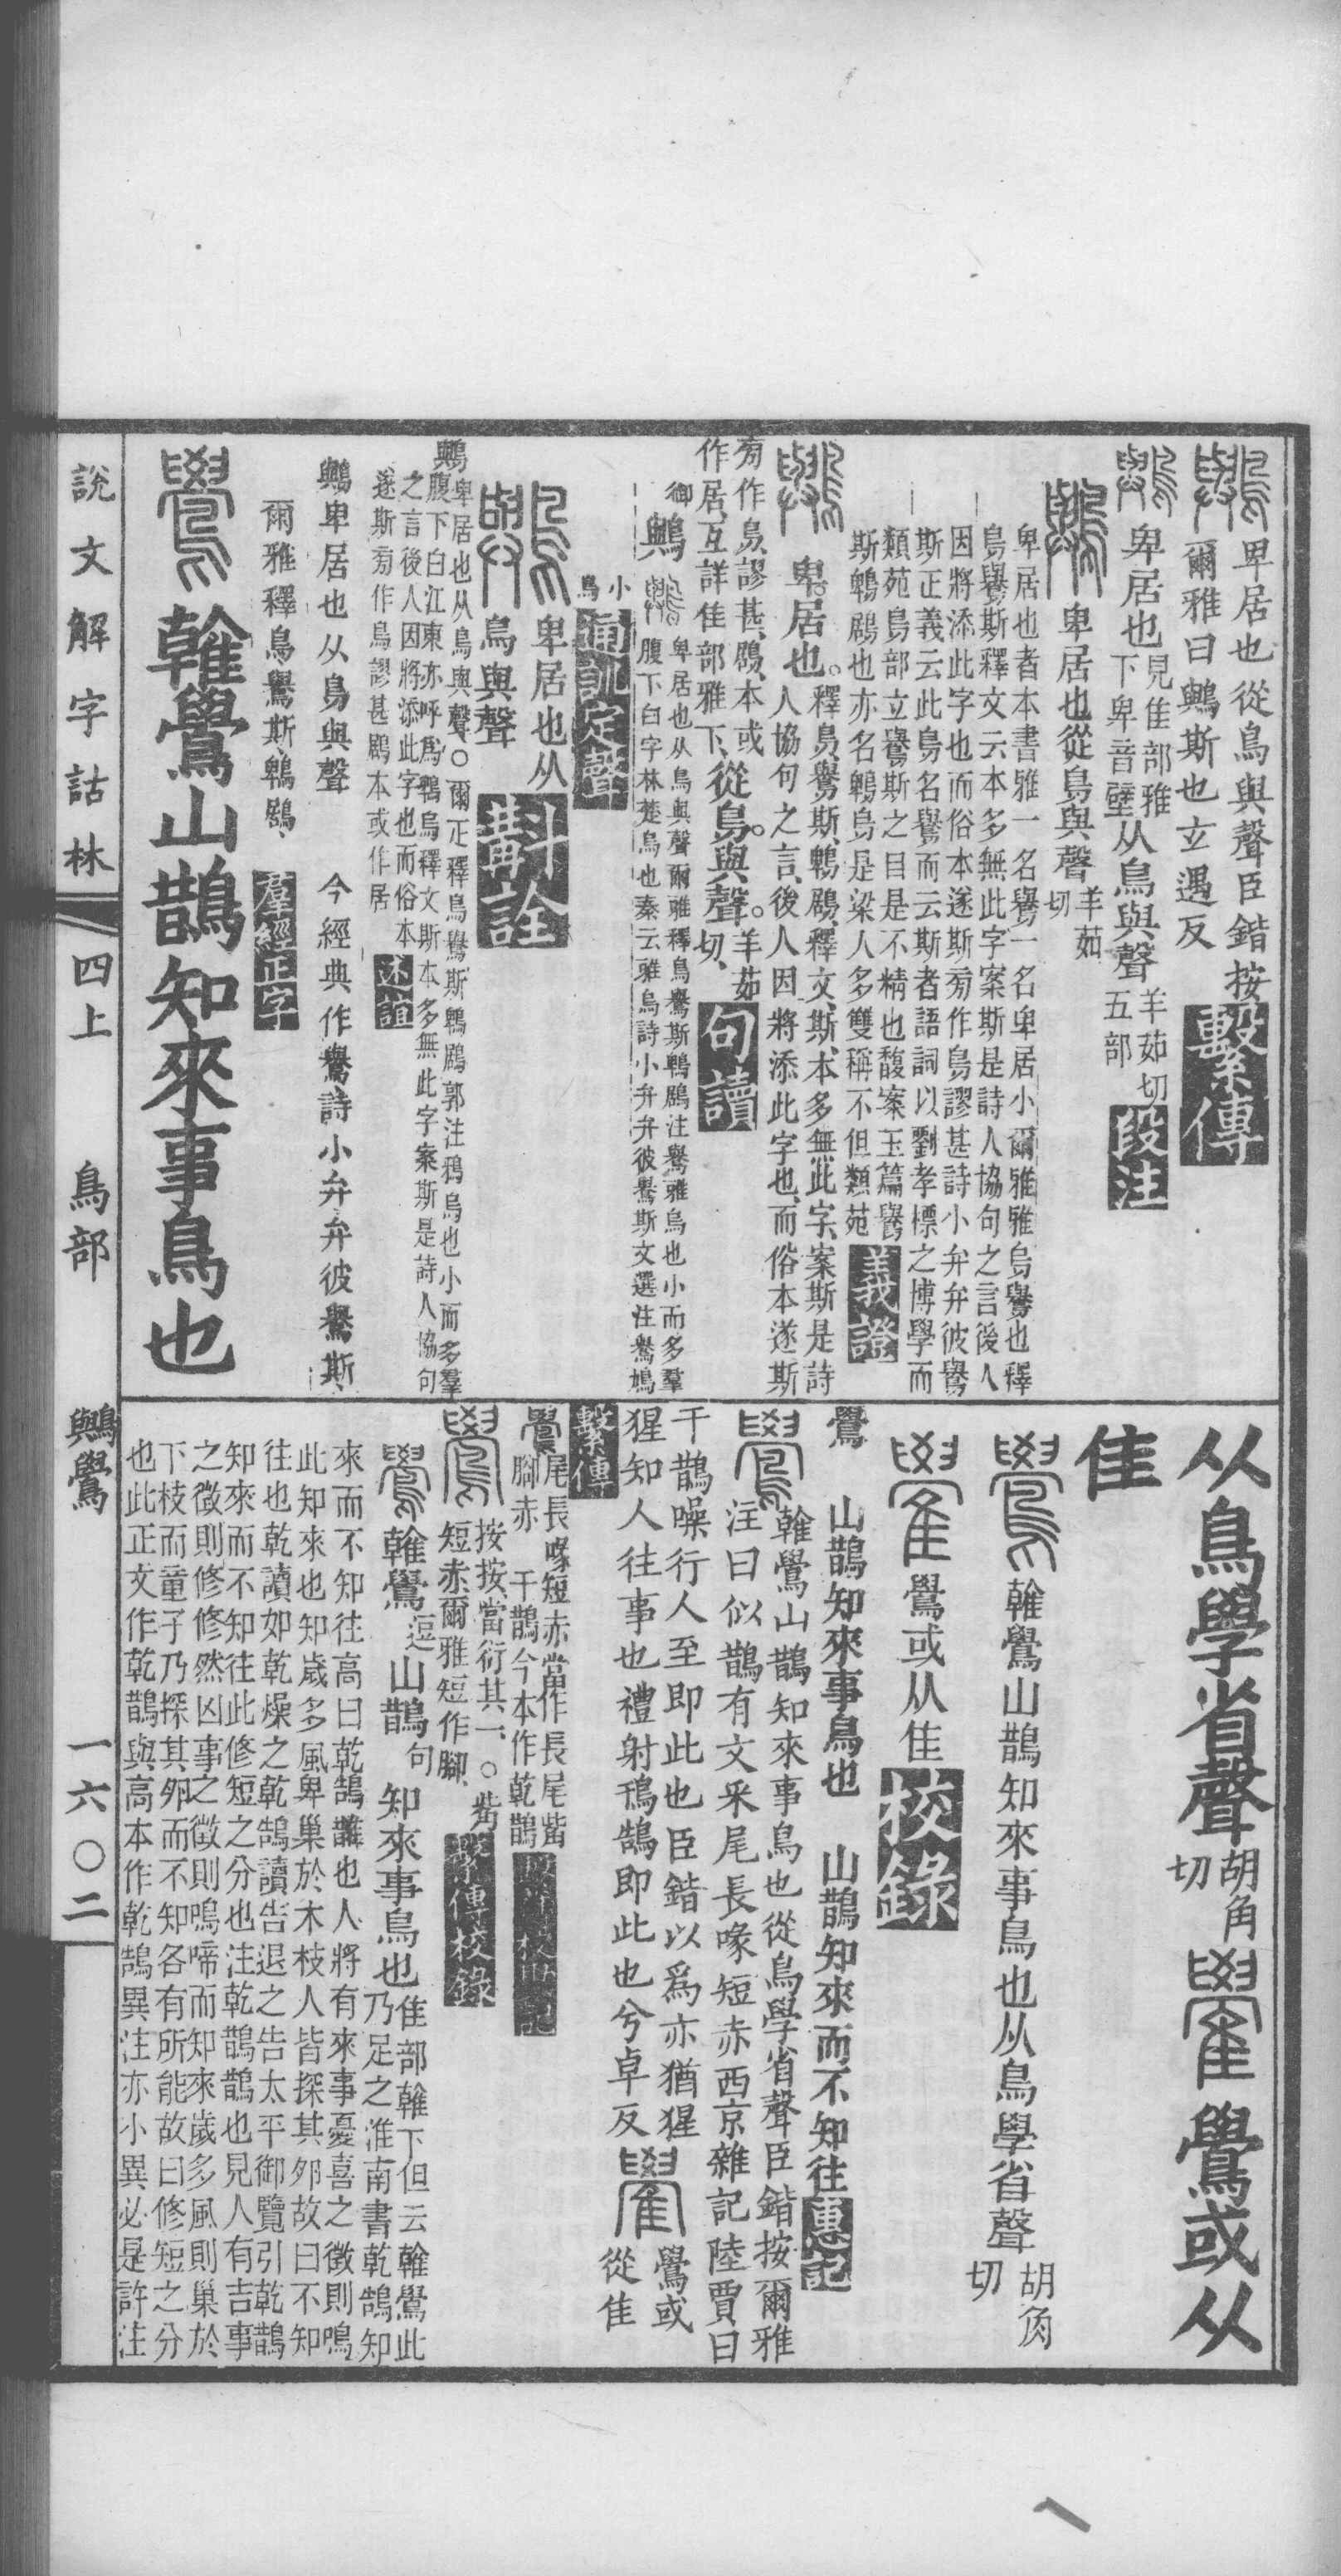 卑居也從鳥與聲臣鍇按
爾雅曰鸒斯也立遇反
繫傳
卑居也
見隹部雅
下卑音壁
从鳥與聲
羊茹切
五部
段注
卑居也從鳥與聲
羊茹
切
卑居也者本書雅一名鸒一名卑居小爾雅雅烏鸒也釋
鳥鸒斯釋文云本多無此字案斯是詩人協句之言後人
因將添此字也而俗本遂斯旁作鳥謬甚詩小弁弁彼鸒
斯正義云此鳥名鸒而云斯者語詞以劉孝標之博學而
類苑鳥部立鸒斯之目是不精也馥案玉篇鸒
斯鵯鶋也亦名鵯鳥是梁人多雙稱不但類苑
義證
卑居也。
釋鳥鸒斯、鵯鶋、釋文、斯、本多無此字、案斯是詩
人協句之言、後人因將添此字也、而俗本遂斯
旁作鳥、謬甚、鶋、本或
作居、互詳隹部雅下、
從鳥。與聲。
羊茹
切、
句讀
御
鸒
卑居也从鳥與聲爾雅釋鳥鸒斯鵯鶋注鸒雅烏也小而多羣
腹下白字林楚烏也秦云雅烏詩小弁弁彼鸒斯文選注鸒鳩
小
鳥
通訓定聲
卑居也从
鳥與聲
斠詮
鸒
卑居也从鳥與聲。爾疋釋鳥鸒斯鵯鶋郭注鴉烏也小而多羣
腹下白江東亦呼爲鵯烏釋文斯本多無此字案斯是詩人協句
之言後人因將添此字也而俗本
遂斯旁作鳥謬甚鶋本或作居
述誼
鸒卑居也从鳥與聲
今經典作鸒、詩小弁弁彼鸒斯、
爾雅釋鳥鸒斯、鵯鶋、
羣經正字
鷽雗鷽山鵲知來事鳥也
从鳥學省聲
胡角
切
鷽或从
隹
雗鷽山鵲知來事鳥也从鳥學省聲
胡角
切
鷽或从隹
校錄
鷽
山鵲知來事鳥也
山鵲知來而不知往
惠記
雗鷽山鵲知來事鳥也從鳥學省聲臣鍇按爾雅
注曰似鵲有文采尾長喙短赤西京雜記陸賈曰
干鵲噪行人至即此也臣鍇以爲亦猶猩
猩知人往事也禮射鳱鵠即此也兮卓反
鷽或
從隹
繫傳
鷽
尾長喙短赤當作長尾觜
腳赤
干鵲今本作乾鵲
按按當衍其一、。觜
短赤爾雅短作腳、
繫傳校錄
雗鷽
逗
山鵲
句
知來事鳥也
隹部雗下但云雗鷽此
乃足之淮南書乾鵠知
來而不知往高曰乾鵠鵲也人將有來事憂喜之徵則鳴
此知來也知歲多風卑巢於木枝人皆探其卵故曰不知
往也乾讀如乾燥之乾鵠讀告退之告太平御覽引乾鵲
知來而不知往此修短之分也注乾鵲鵲也見人有吉事
之徵則修修然凶事之徵則鳴啼而知來歲多風則巢於
下枝而童子乃探其卵而不知各有所能故曰修短之分
也此正文作乾鵲與高本作乾鵠異注亦小異必是許注
說文解字詁林
四上
鳥部
鸒鷽
一六〇二